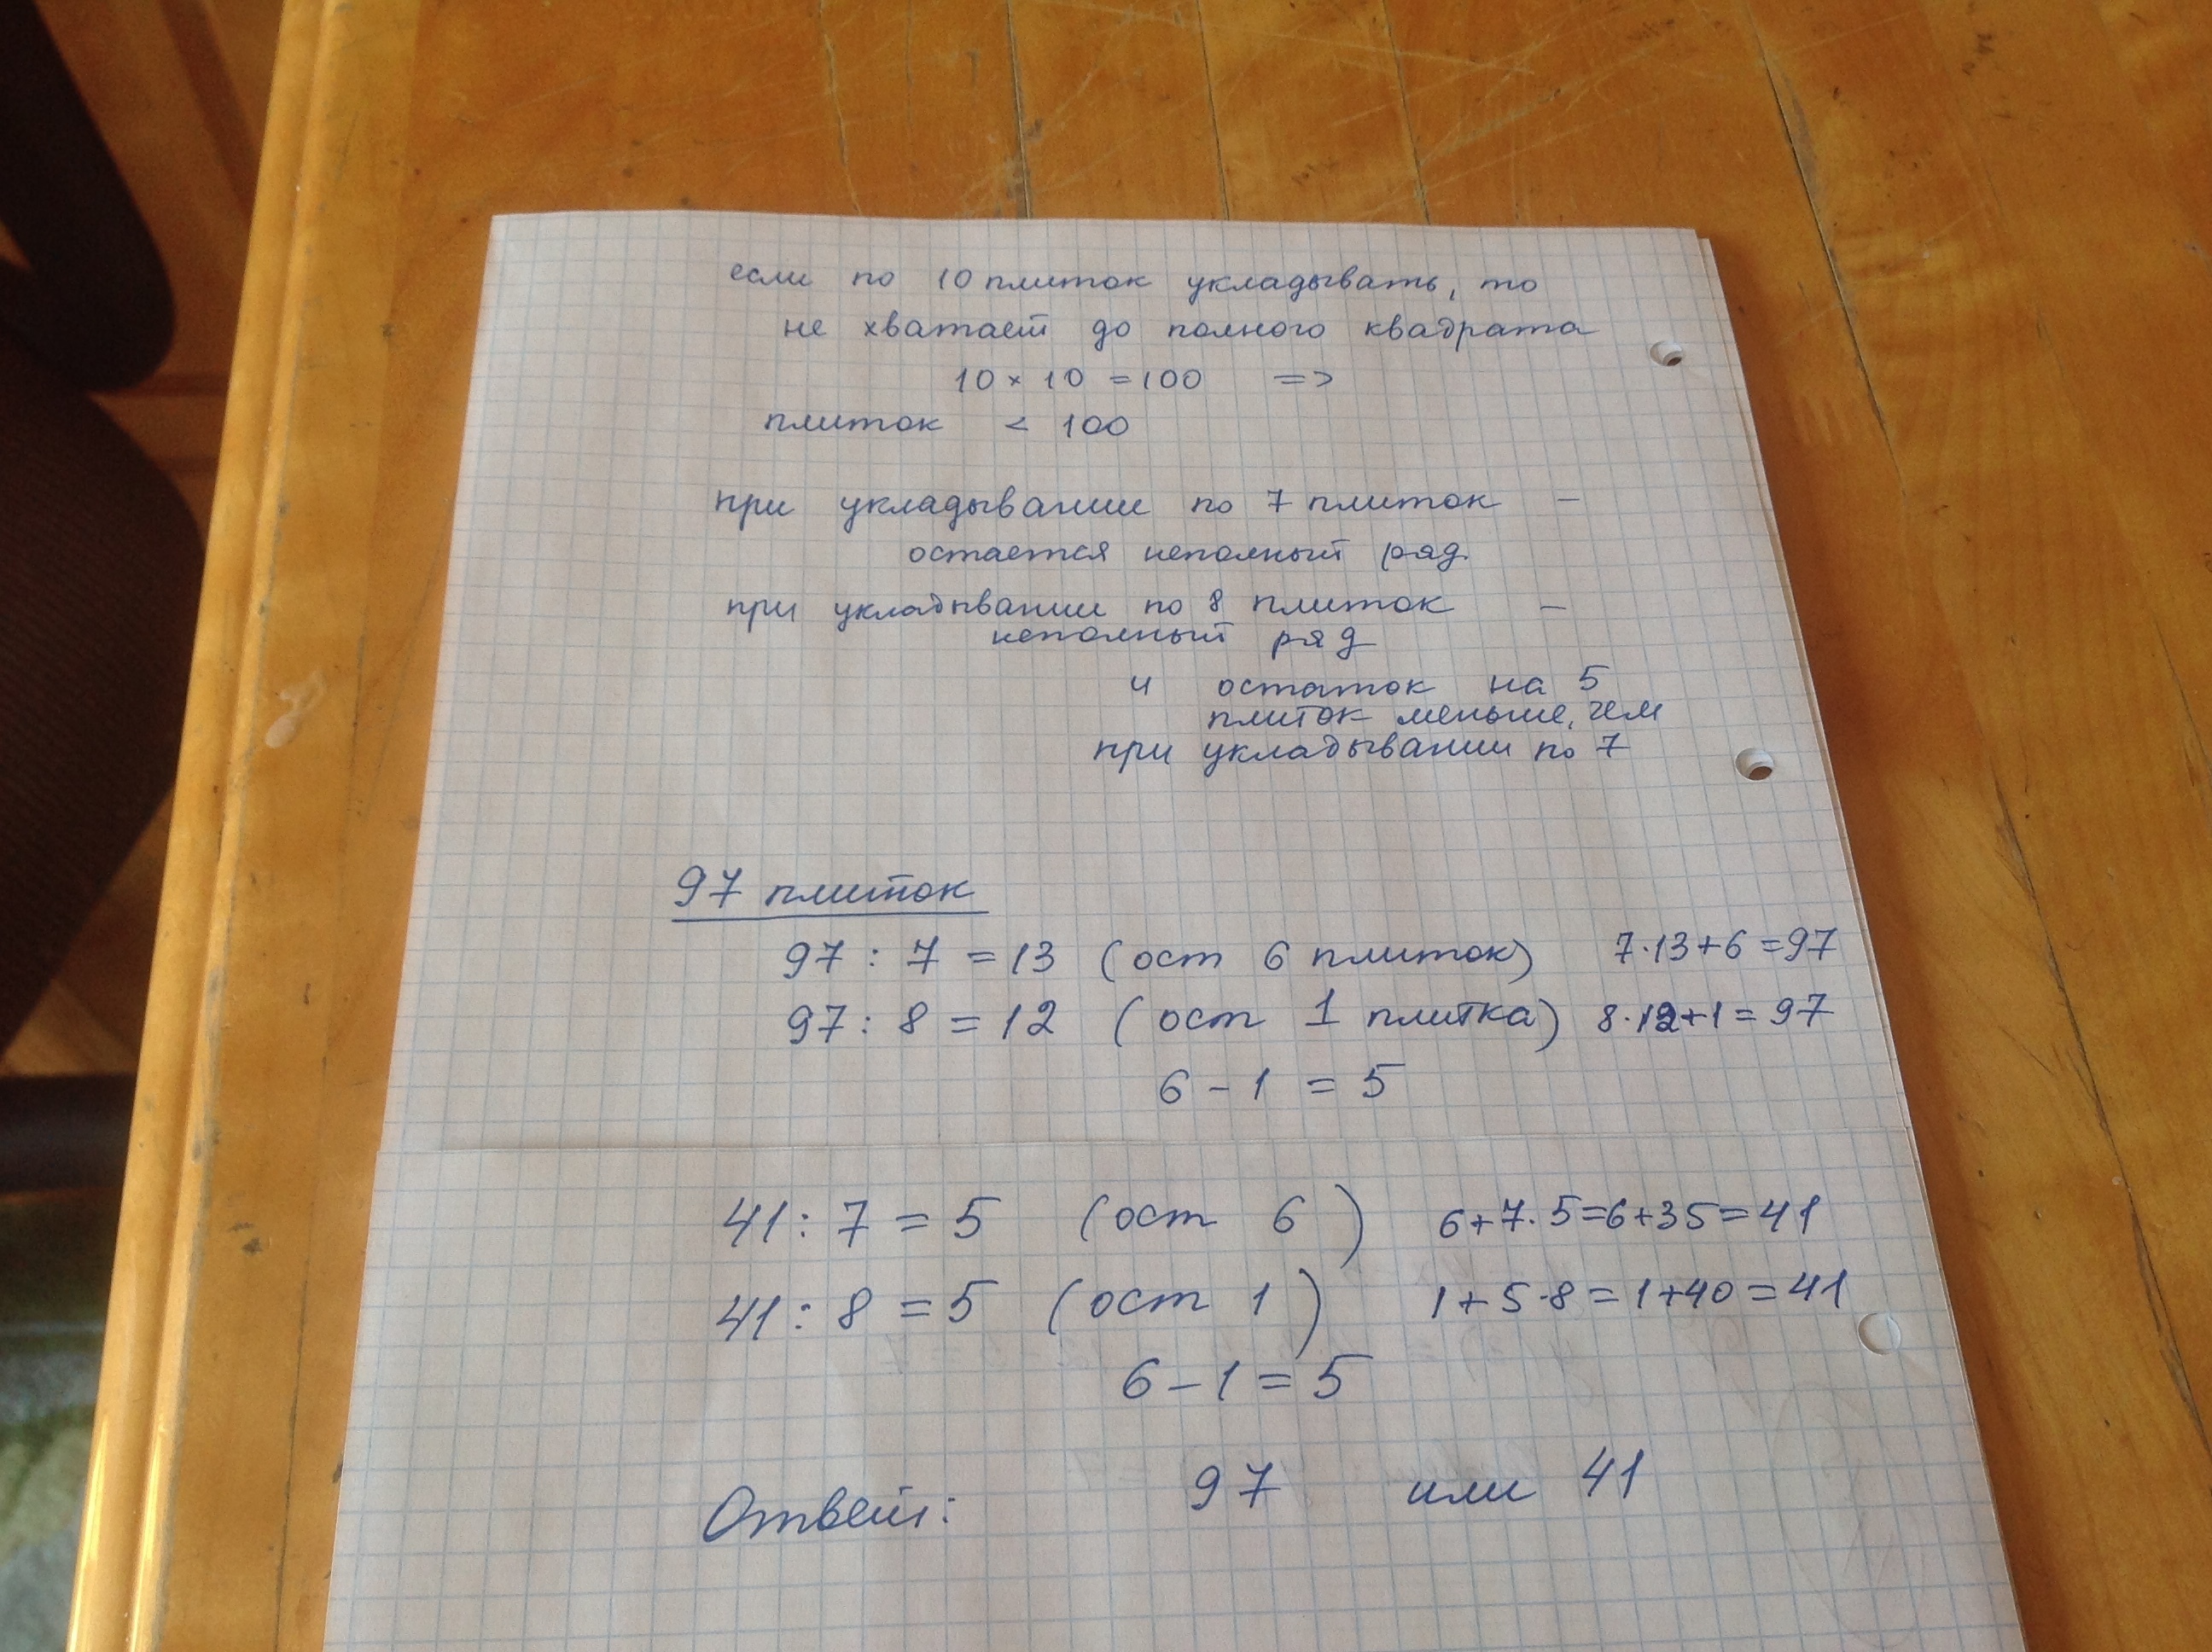 если по 10 плиток укладывать, то
не хватает до полного квадрата
10 × 10 = 100 =>
плиток < 100
при укладывании по 7 плиток –
остается неполный ряд.
при укладывании по 8 плиток –
неполный ряд
и остаток на 5
плиток меньше, чем
при укладывании по 7
97 плиток
97 : 7 = 13 (ост 6 плиток) 7·13+6=97
97 : 8 = 12 (ост 1 плитка) 8·12+1=97
6 – 1 = 5
41 : 7 = 5 (ост 6) 6+7·5=6+35=41
41 : 8 = 5 (ост 1) 1+5·8=1+40=41
6 – 1 = 5
Ответ: 97 или 41